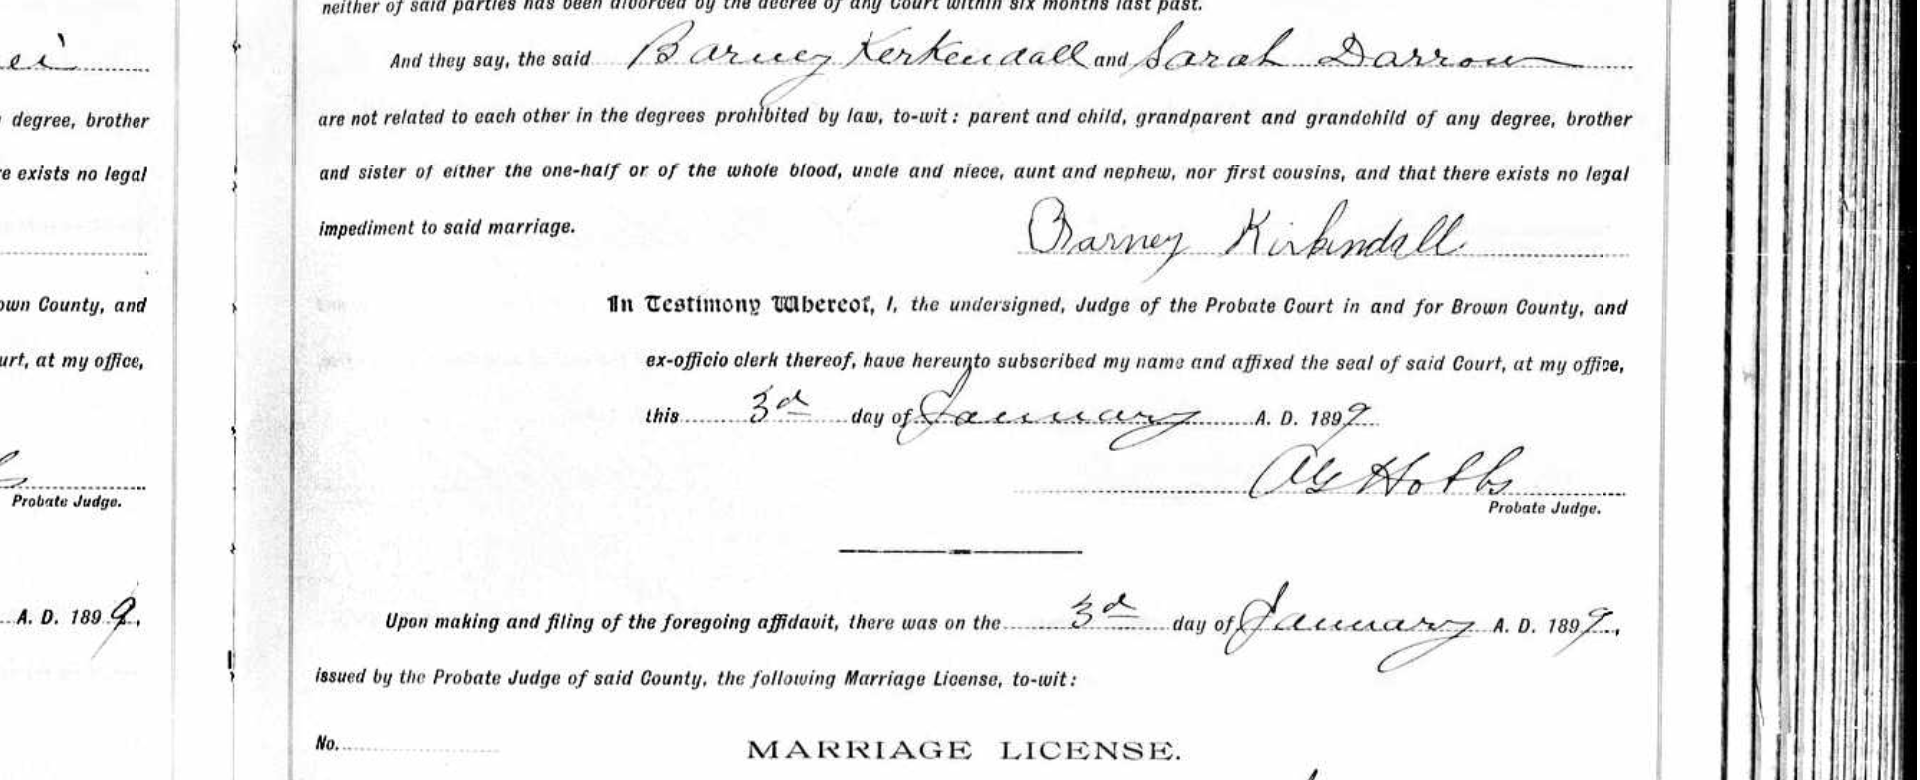 neither of said parties has been divorced by the decree of any Court within six months last past.
ei
And they say, the said Barney Kerkendall and Sarah Darrow
degree, brother
are not related to each other in the degrees prohibited by law, to-wit: parent and child, grandparent and grandchild of any degree, brother
e exists no legal
and sister of either the one-half or of the whole blood, uncle and niece, aunt and nephew, nor first cousins, and that there exists no legal
impediment to said marriage.
Barney Kirkendall
own County, and
In Testimony Whereof, I, the undersigned, Judge of the Probate Court in and for Brown County, and
urt, at my office,
ex-officio clerk thereof, have hereunto subscribed my name and affixed the seal of said Court, at my office,
this 3d day of January A. D. 1899
Hobbs
Probate Judge.
Probate Judge.
A. D. 1899,
Upon making and filing of the foregoing affidavit, there was on the 3d day of January A. D. 1899,
issued by the Probate Judge of said County, the following Marriage License, to-wit:
No.
MARRIAGE LICENSE.